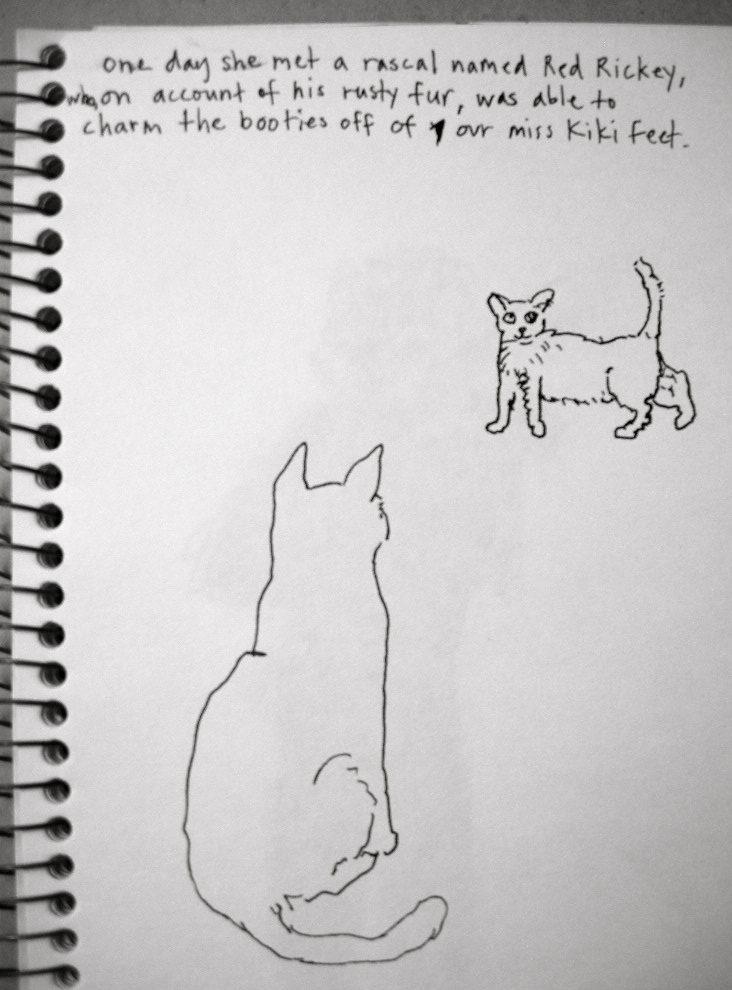 one day she met a rascal named Red Rickey,
who, on account of his rusty fur, was able to
charm the booties off of our miss Kiki Feet.